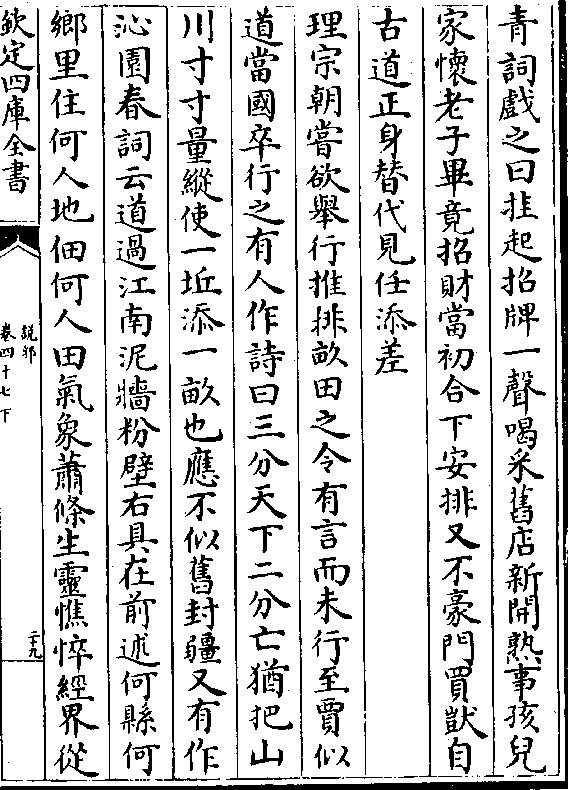 青詞戲之曰挂起招牌一聲喝采舊店新開熟事孩兒
家懷老子畢竟招財當初合下安排又不豪門買獃自
古道正身替代見任添差
理宗朝嘗欲舉行推排畝田之令有言而未行至賈似
道當國卒行之有人作詩曰三分天下二分亡猶把山
川寸寸量縱使一坵添一畝也應不似舊封疆又有作
沁園春詞云道過江南泥牆粉壁右具在前述何縣何
鄉里住何人地佃何人田氣象蕭條生靈憔悴經界從
欽定四庫全書
說郛
卷四十七下
二十九